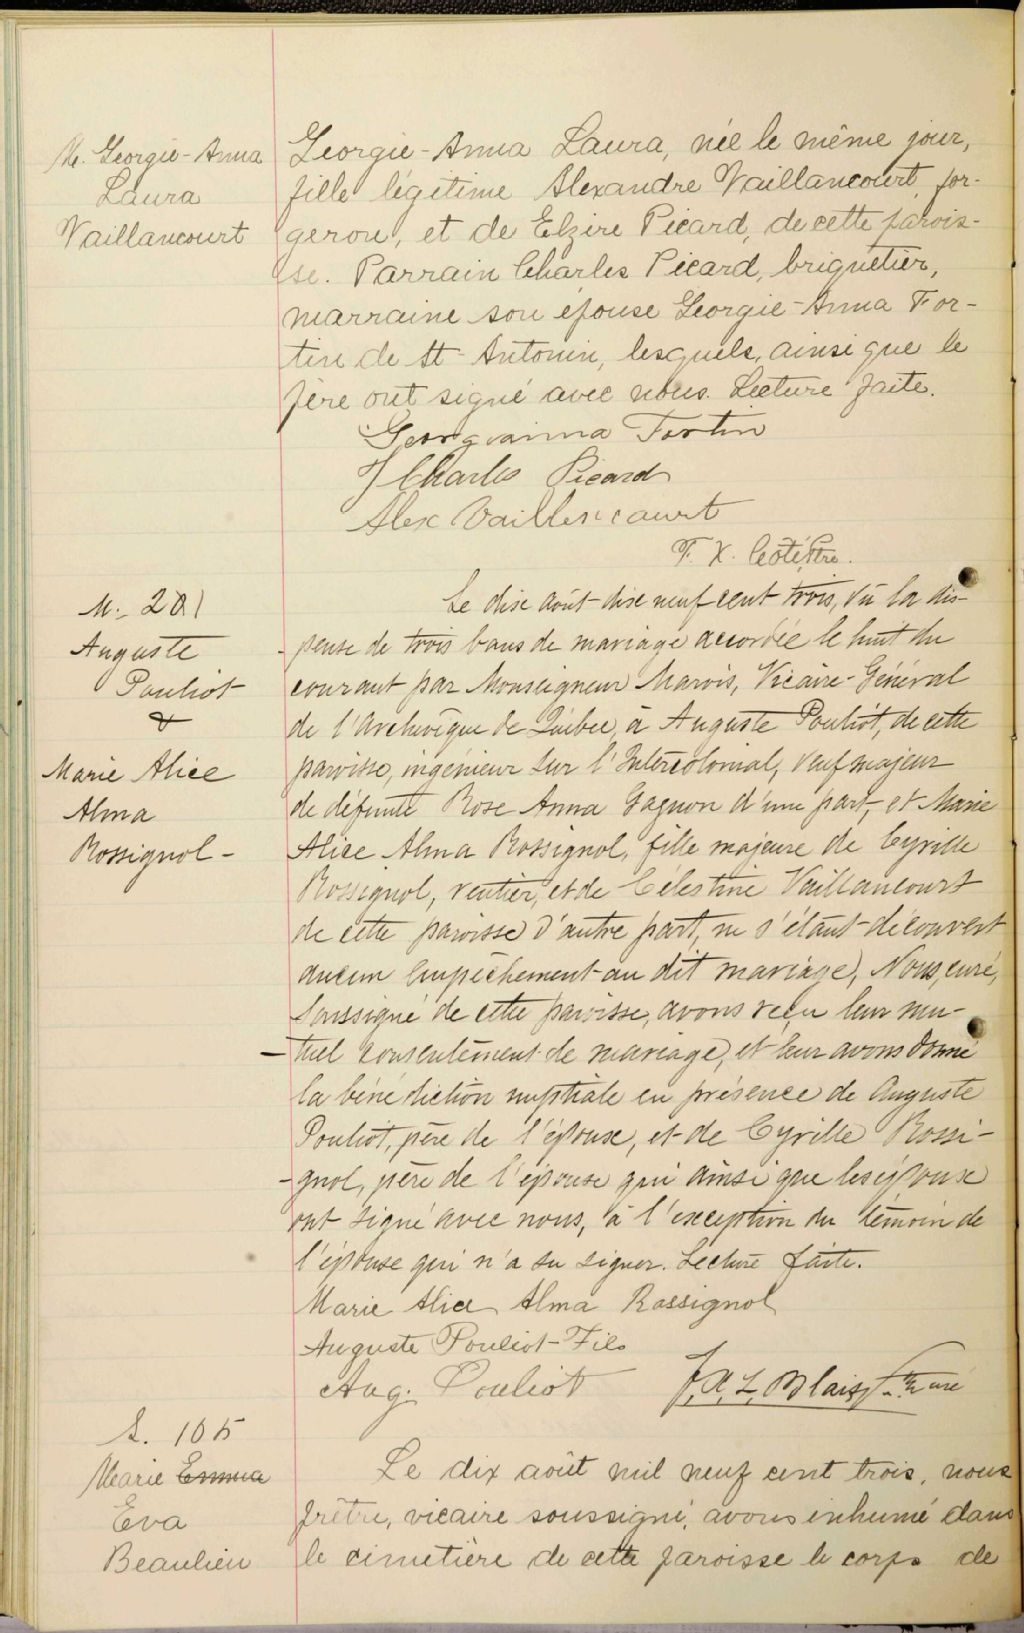 M. Georgie-Anna
Laura
Vaillancourt
Georgie-Anna Laura, née le même jour,
fille légitime Alexandre Vaillancourt, for-
geron, et de Elzire Picard, de cette parois-
se. Parrain Charles Picard, briquetier,
marraine son épouse Georgie-Anna For-
tin de St-Antonin, lesquels, ainsi que le
père ont signé avec nous. Lecture faite.
Georgianna Fortin
Charles Picard
Alex Vaillencourt
F. X. Coté, Ptre.
M. 201
Auguste
Pouliot
&
Marie Alice
Alma
Rossignol -
Le dix août dix neuf cent trois, Vû la dis-
pense de trois bans de mariage accordée le huit du
courant par Monseigneur Marois, Vicaire-Général
de l'Archevêque de Québec, à Auguste Pouliot, de cette
paroisse, ingénieur sur l'Intercolonial, Veuf majeur
de défunte Rose Anna Gagnon d'une part, et Marie
Alice Alma Rossignol, fille majeure de Cyrille
Rossignol, rentier, et de Célestine Vaillancourt
de cette paroisse d'autre part, ne s'étant découvert
aucun empêchement au dit mariage, Nous, curé,
Soussigné de cette paroisse, avons reçu leur mu-
-tuel consentement de mariage, et leur avons donné
la bénédiction nuptiale en présence de Auguste
Pouliot, père de l'époux, et de Cyrille Rossi-
-gnol, père de l'épouse qui ainsi que les époux
ont signé avec nous, à l'exception du témoin de
l'épouse qui n'a su signer. Lecture faite.
Marie Alice Alma Rossignol
Auguste Pouliot-Fils
Aug. Pouliot
J. A. L. Blais, Ptre curé
S. 105
Marie Emma
Eva
Beaulieu
Le dix août mil neuf cent trois, nous
prêtre, vicaire soussigné, avons inhumé dans
le cimetière de cette paroisse le corps de